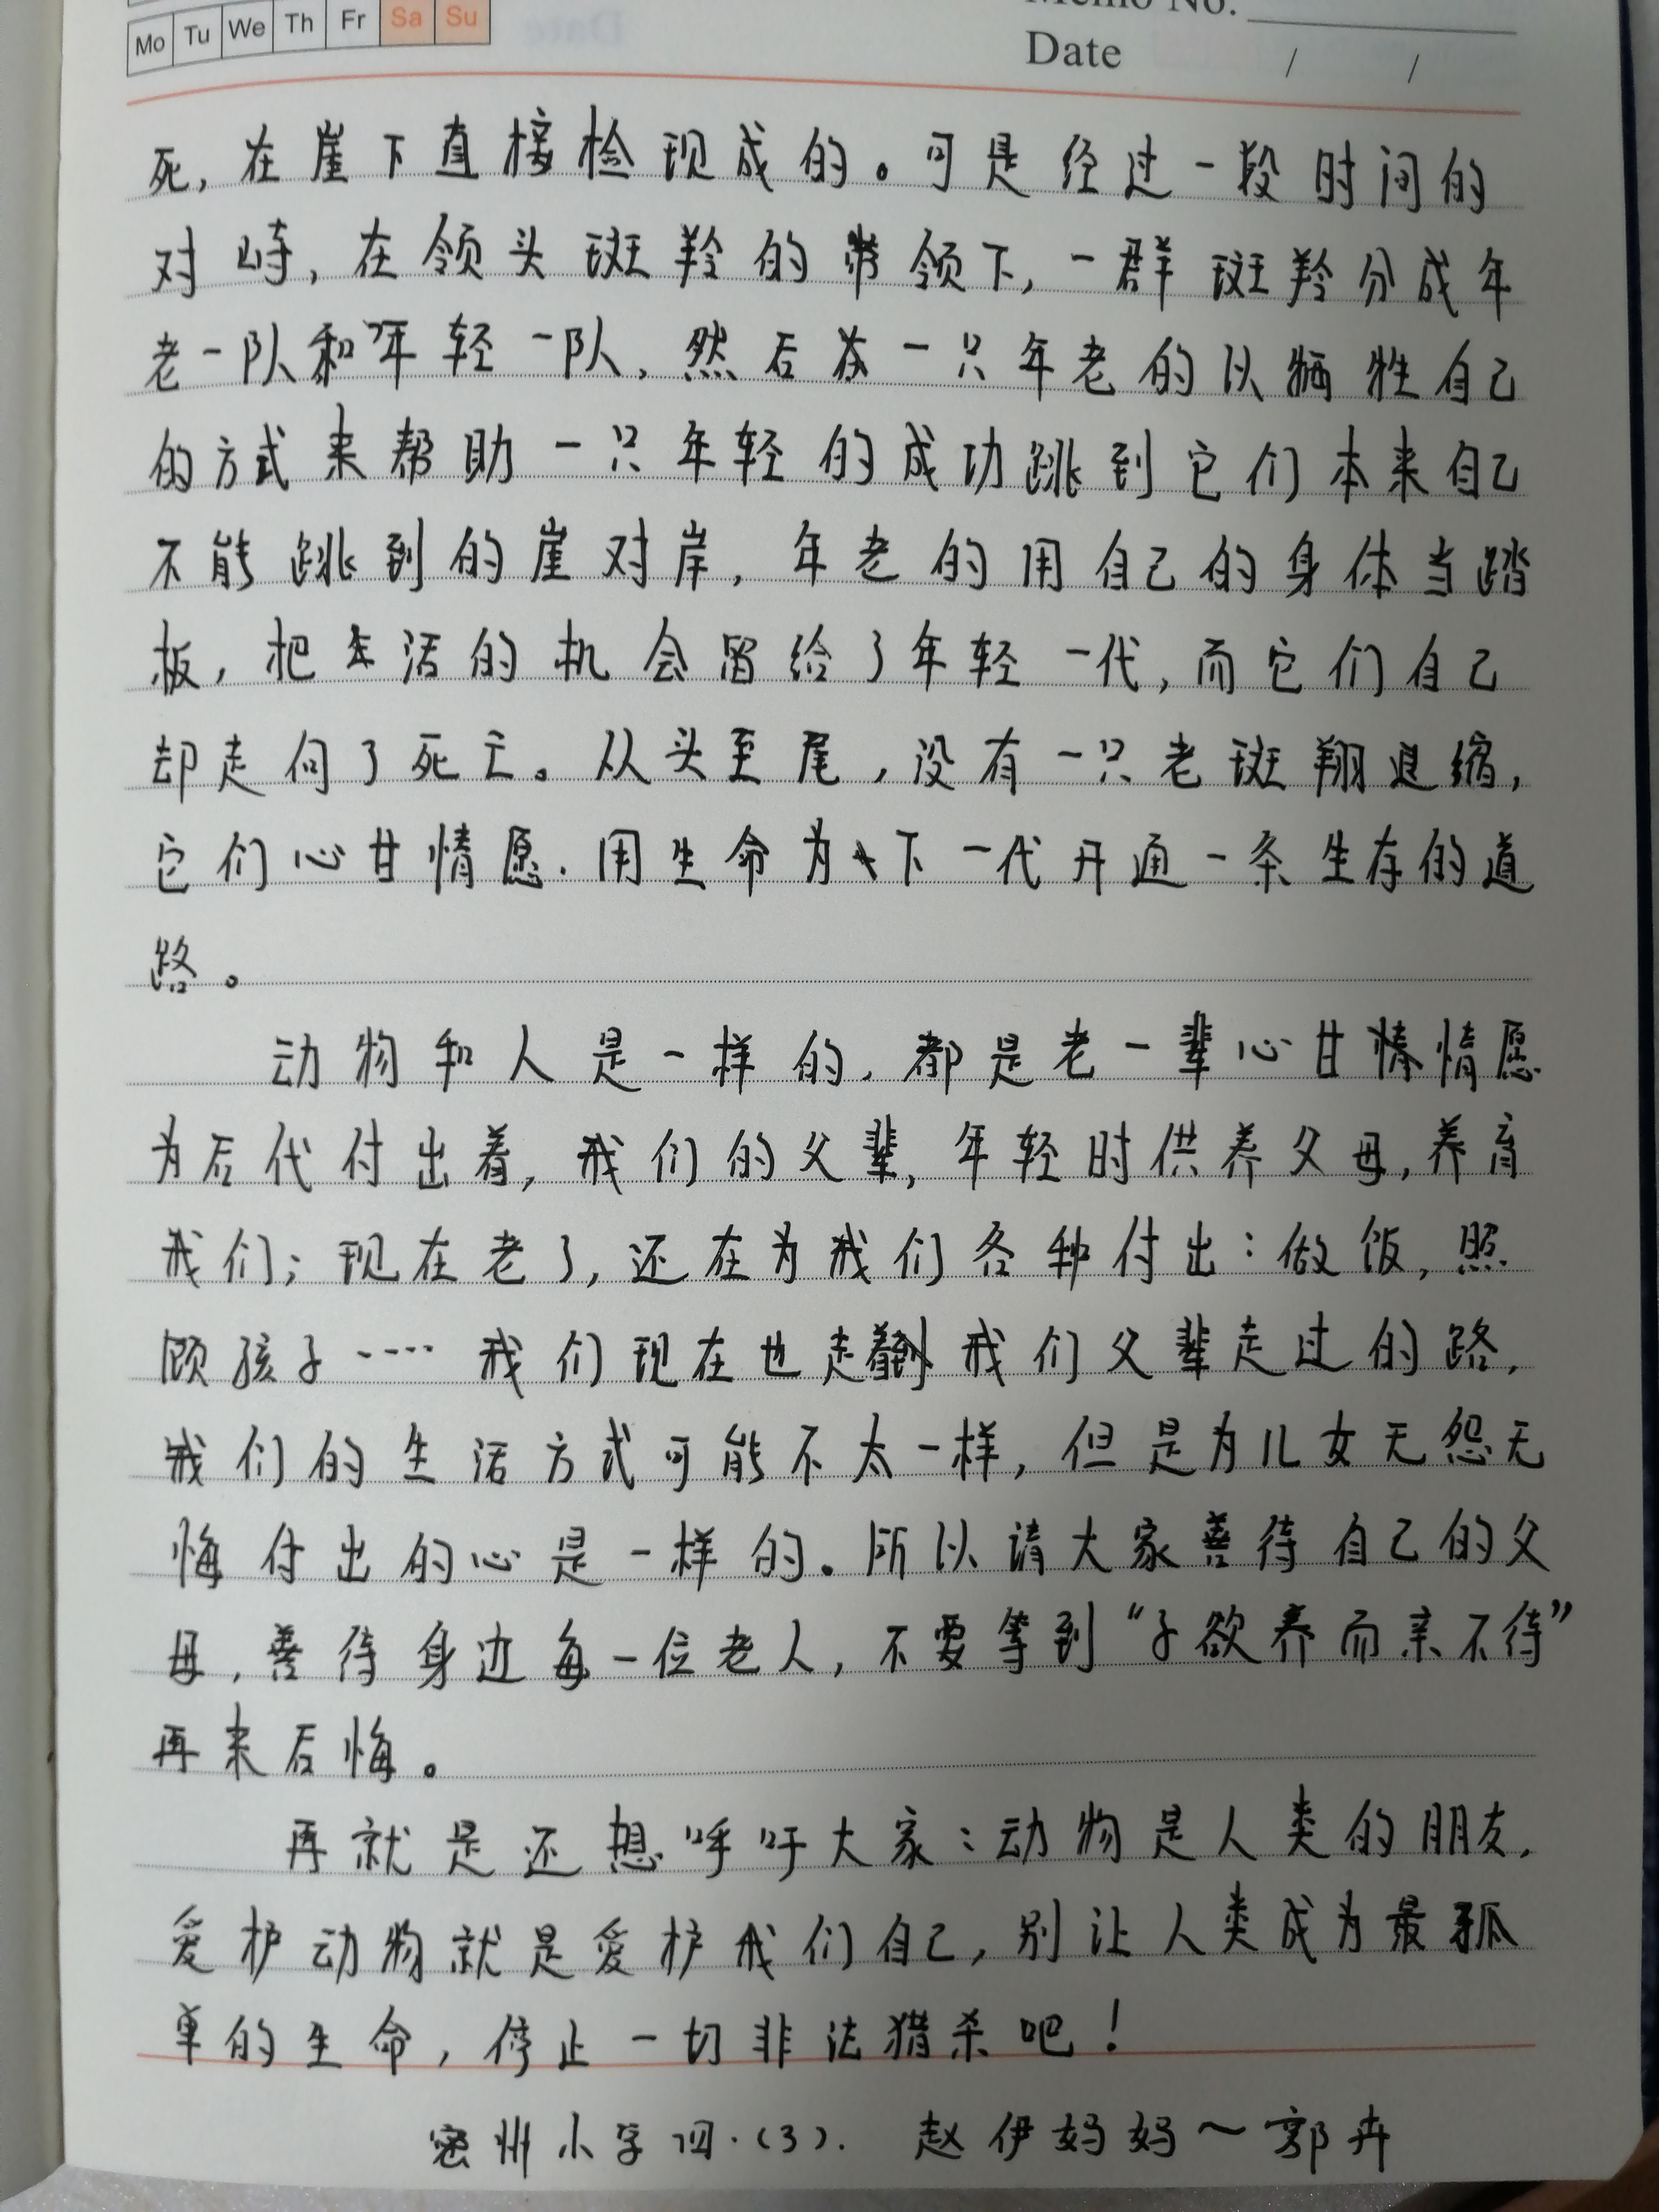 Mo Tu We Th Fr Sa Su
Memo No.
Date / /
死，在崖下直接检现成的。可是经过一段时间的
对峙，在领头斑羚的带领下，一群斑羚分成年
老一队和年轻一队，然后在一只年老的以牺牲自己
的方式来帮助一只年轻的成功跳到它们本来自己
不能跳到的崖对岸，年老的用自己的身体当踏
板，把生活的机会留给了年轻一代，而它们自己
却走向了死亡。从头至尾，没有一只老斑翔退缩，
它们心甘情愿．用生命为下一代开通一条生存的道
路。
动物和人是一样的，都是老一辈心甘情情愿
为后代付出着，我们的父辈，年轻时供养父母，养育
我们；现在老了，还在为我们各种付出：做饭，照
顾孩子……我们现在也走到我们父辈走过的路，
我们的生活方式可能不太一样，但是为儿女无怨无
悔付出的心是一样的。所以请大家善待自己的父
母，善待身边每一位老人，不要等到“子欲养而亲不待”
再来后悔。
再就是还想呼吁大家：动物是人类的朋友，
爱护动物就是爱护我们自己，别让人类成为最孤
单的生命，停止一切非法猎杀吧！
密州小学四．（3）．赵伊妈妈～郭卉